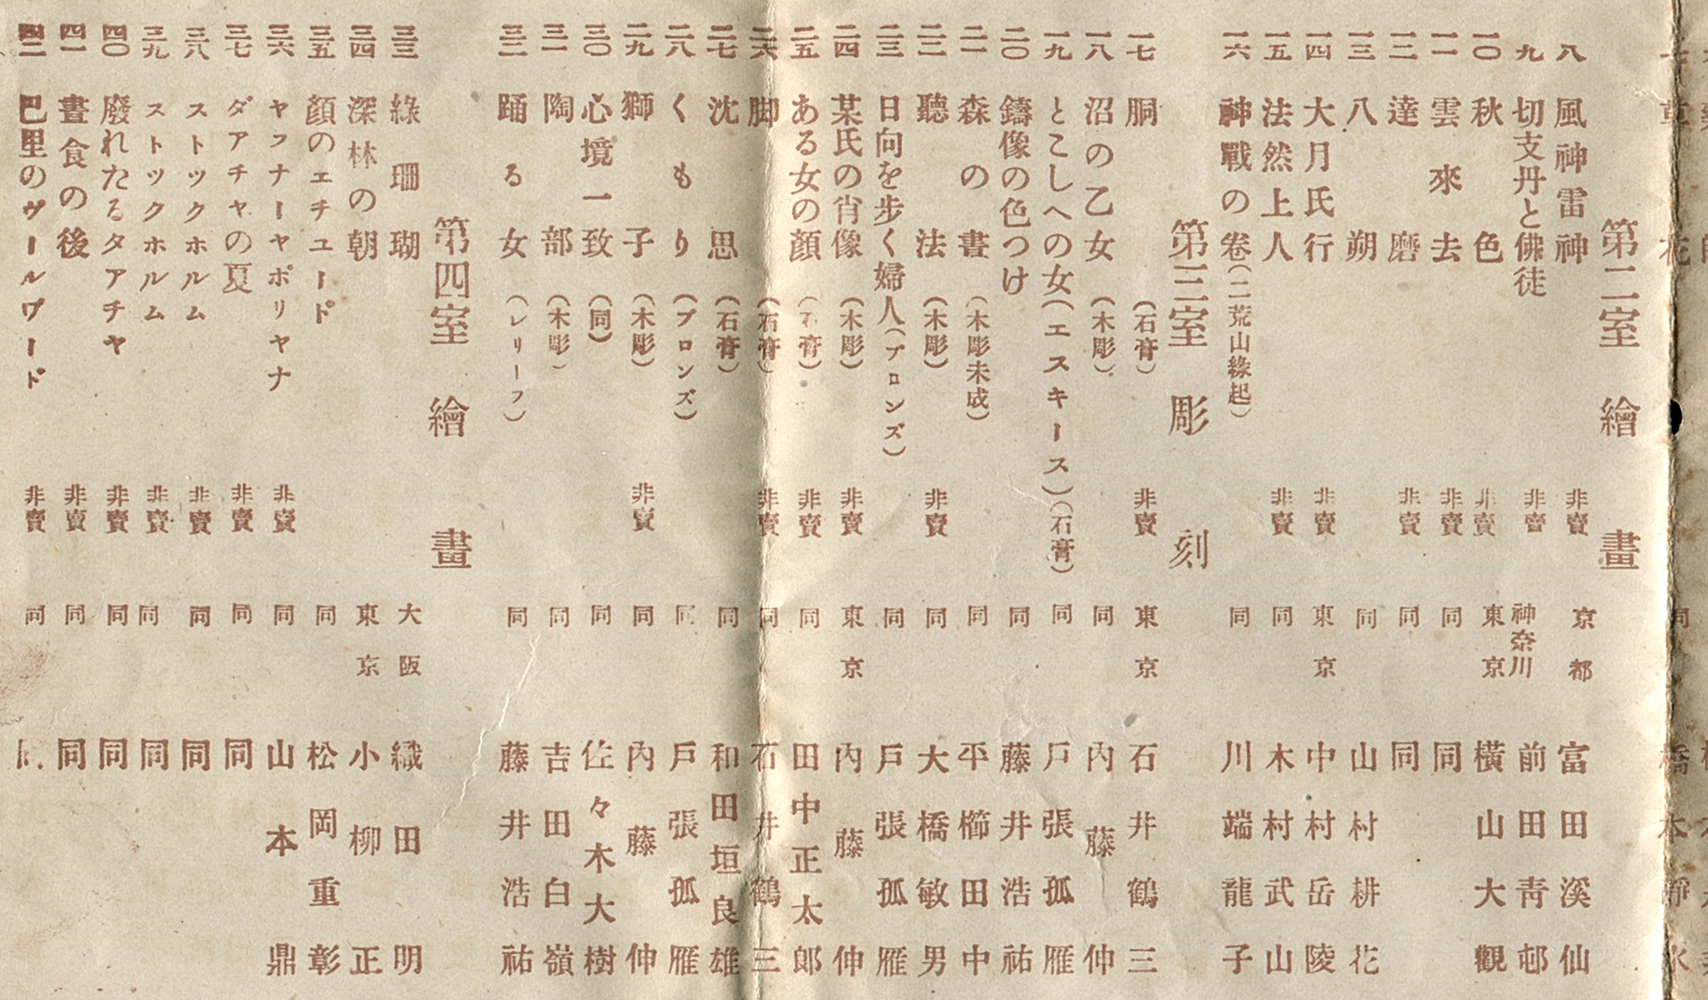 七 草花 同 橋本靜水
第二室 繪畫
八 風神雷神 非賣 京都 富田溪仙
九 切支丹と佛徒 非賣 神奈川 前田靑邨
一〇 秋色 非賣 東京 橫山大觀
一一 雲來去 非賣 同 同
一二 達磨 非賣 同 同
一三 八朔 同 山村耕花
一四 大月氏行 非賣 東京 中村岳陵
一五 法然上人 非賣 木村武山
一六 神戰の卷(二荒山緣起) 同 川端龍子
第三室 彫刻
一七 胴 (石膏) 非賣 東京 石井鶴三
一八 沼の乙女 (木彫) 同 內藤伸
一九 とこしへの女(エスキース)(石膏) 同 戶張孤雁
二〇 鑄像の色つけ 同 藤井浩祐
二一 森の書 (木彫未成) 同 平櫛田中
二二 聽法 (木彫) 非賣 同 大橋敏男
二三 日向を步く婦人(ブロンズ) 同 戶張孤雁
二四 某氏の肖像 (木彫) 非賣 東京 內藤伸
二五 ある女の顏 (石膏) 非賣 同 田中正太郞
二六 脚 (石膏) 非賣 同 石井鶴三
二七 沈思 (石膏) 同 和田垣良雄
二八 くもり (ブロンズ) 同 戶張孤雁
二九 獅子 (木彫) 非賣 同 內藤伸
三〇 心境一致 (同) 同 佐々木大樹
三一 陶部 (木彫) 同 吉田白嶺
三二 踊る女 (レリーフ) 同 藤井浩祐
第四室 繪畫
三三 綠珊瑚 大阪 織田明
三四 深林の朝 東京 小柳正
三五 顏のエチユード 同 松岡重彰
三六 ヤフナーヤポリヤナ 非賣 同 山本鼎
三七 ダアチヤの夏 非賣 同 同
三八 ストツクホルム 非賣 同 同
三九 ストツクホルム 非賣 同 同
四〇 廢れたるタアチヤ 非賣 同 同
四一 晝食の後 非賣 同 同
四二 巴里のヴールヴード 非賣 同